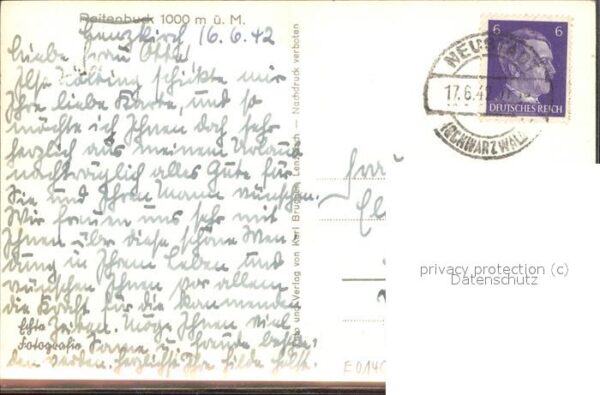 Reitenbuck 1000 m ü. M.
Lenzkirch 16.6.42
Liebe Frau Otto!
Ilse schickte mir
Ihre liebe Karte, und so
möchte ich Ihnen doch sehr
herzlich aus meinem Urlaub
nachträglich alles Gute für
Sie und Ihren Mann wünschen.
Wir freuen uns sehr mit
Ihnen über diese schöne Wen
dung in Ihrem Leben und
wünschen Ihnen vor allem
die Kraft für die kommenden
Zeiten. Möge Ihnen viel
Sonne u. Freude beschie
den werden. Herzlichst Ihre Hilde
Echte
Fotografie
Foto und Verlag von Karl Brugger, Lenzkirch — Nachdruck verboten
6 6
DEUTSCHES REICH
NEUSTADT
17.6.42
(SCHWARZWALD)
Frau
E014
privacy protection (c)
Datenschutz